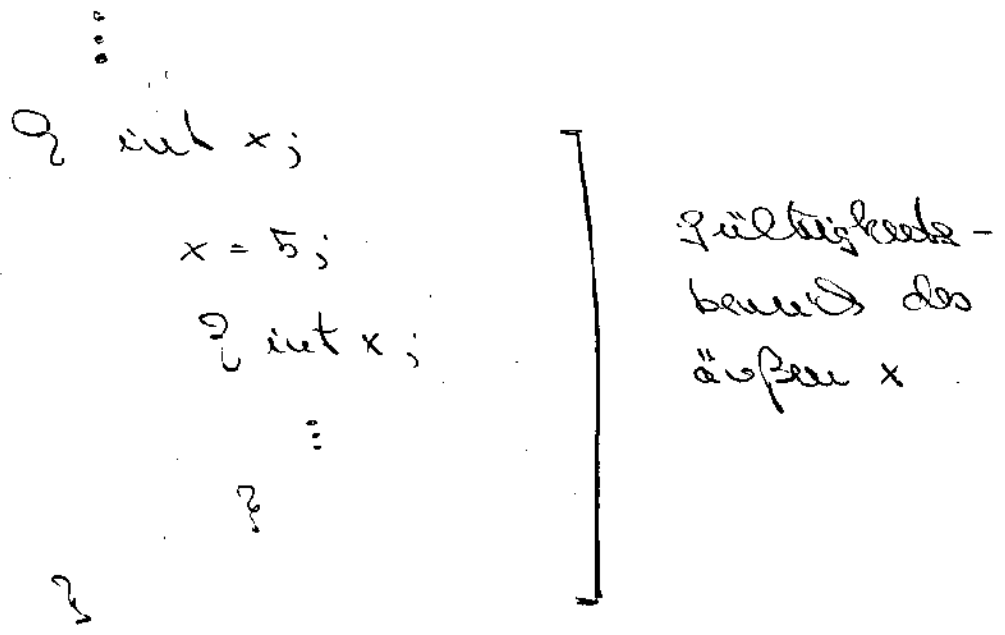 ⋮
{ int x;
x = 5;
{ int x;
⋮
}
}
Gültigkeits-
bereich des
äußeren x